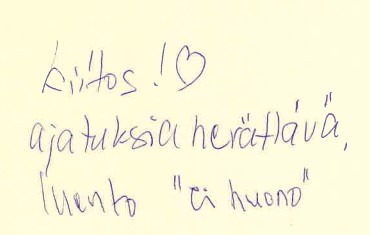 Kiitos! ♡
ajatuksia herättävä,
luento "ei huono"